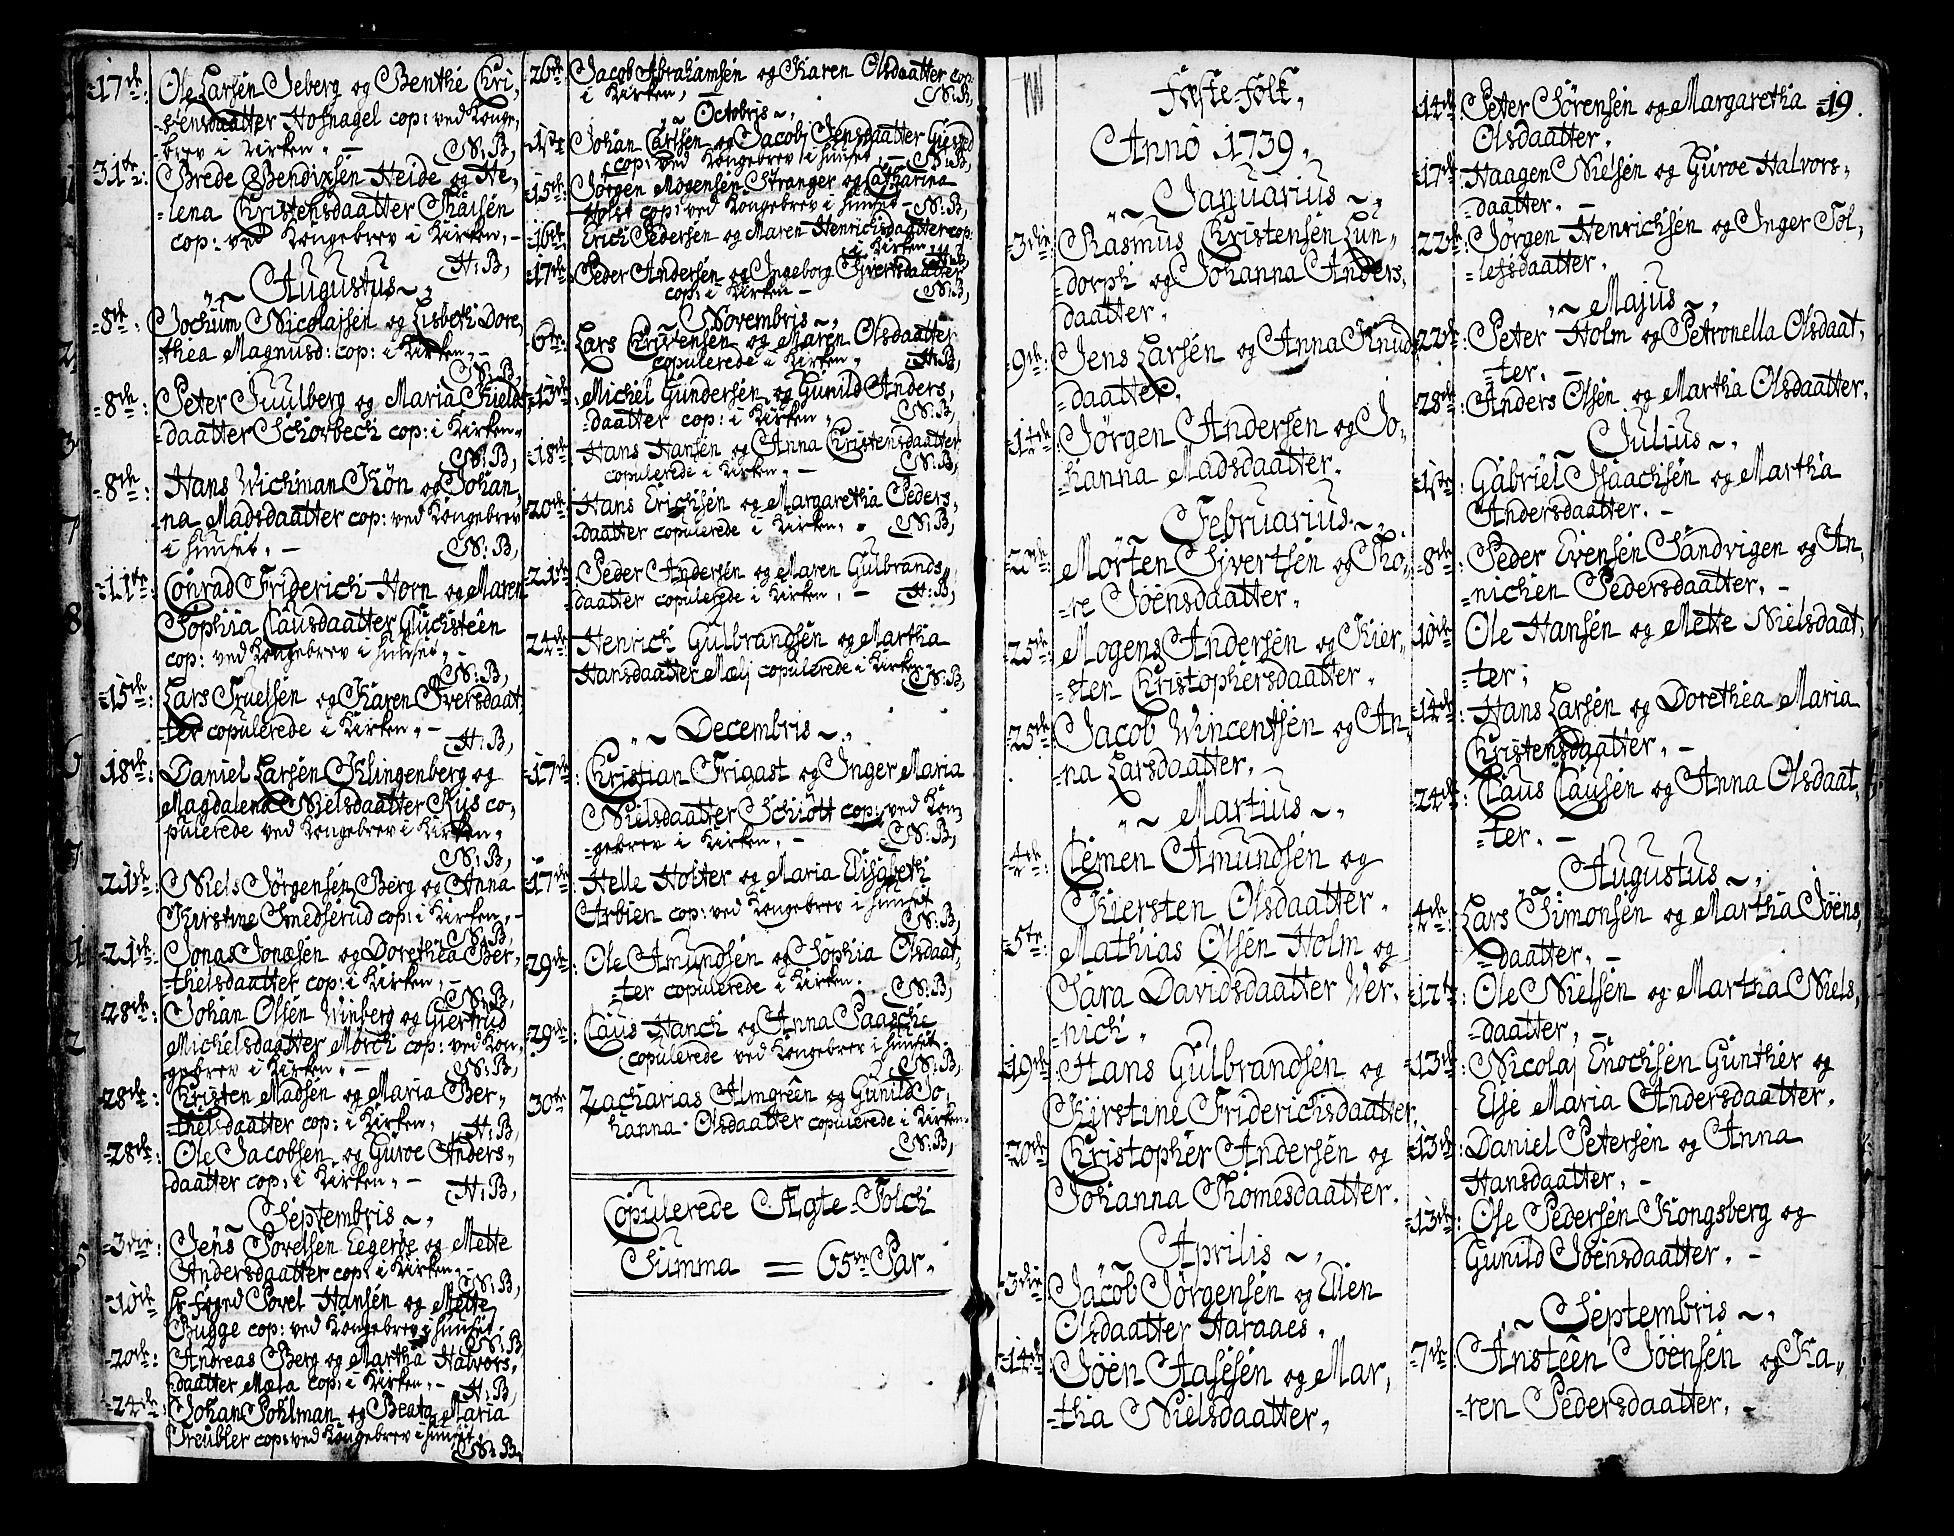 17de: Ole Larsen Jeberg og Benthe Chri-
-stensdaatter Hofnagel cop: ved Konge-
brev i Kirken. - N: B,
31te: Brede Bendixsen Heide og He-
-lena Christensdaatter Thaisen
cop: ved Kongebrev i Kirken. -
H: B,
Augustus
8de: Jochum Nicolajsen og Lisbeth Dore-
thea Magnusd: cop: i Kirken. -
N: B,
8de: Peter Juulberg og Maria Kields
-daatter Schorbech cop: i Kirken.
N: B,
8de: Hans Wichman Køn og Johan,
-na Madsdaatter cop: ved Kongebrev
i Huuset. - N: B,
11te: Conrad Friderich Horn og Maren
Sophia Clausdaatter Gluchsteen
cop: ved Kongebrev i Huuset. -
N: B,
15de: Lars Truelsen og Karen Iversdaat,
ter copulerede i Kirken. -
H: B,
18de: Daniel Larsen Klingenberg og
Magdalena Nielsdaatter Riis co-
pulerede ved Kongebrev i Kirken.
N: B,
21de: Niels Jørgensen Berg og Anna
Kirstine Smedserud cop: i Kirken. -
N: B,
21de: Jonas Jonæsen og Dorethea Ber-
thelsdaatter cop: i Kirken. -
N: B,
28de: Johan Olsen Winberg og Giertrud
Michelsdaatter Morch cop: ved Kon-
gebrev i Kirken. - N: B,
28de: Christen Madsen og Maria Ber-
-thelsdaatter cop: i Kirken.
H: B,
28de: Ole Jacobsen og Guroe Anders-
daatter cop: i Kirken. -
H: B,
Septembris
3die: Jens Povelsen Eegeroe og Mette
Andersdaatter cop: i Kirken. -
N: B,
10de: Sr Foged Povel Hansen og Mette
Bugge cop: ved Kongebrev i Huuset.
N: B,
20de: Andreas Berg og Martha Halvors,
daatter Mæla cop: i Kirken. -
H: B,
24de: Johan Pohlman og Beata Maria
Treubler cop: ved Kongebrev i Huuset.
N: B,
26de: Jacob Abrahamsen og Karen Olsdaatter cop:
i Kirken. - N: B,
Octobris
1ste: Johan Carlsen og Jacobj Jensdaatter
cop: ved Kongebrev i Huuset. - N: B,
15de: Jørgen Mogensen Stranger og Catharina
Holst cop: ved Kongebrev i Huuset - N: B,
16de: Erich Pedersen og Maren Henrichsdaatter cop:
i Kirken. H: B,
17de: Peder Andersen og Ingeborg Sjvertsdaatter
cop: i Kirken - N: B,
Novembris
6te: Lars Christensen og Maren Olsdaatter
copulerede i Kirken. H: B,
13de: Michel Gundersen og Gunild Anders,
daatter cop: i Kirken. N: B,
18de: Hans Hansen og Anna Christensdaatter
copulerede i Kirken. - N: B,
20de: Hans Erichsen og Margaretha Peders,
daatter copulerede i Kirken. N: B,
21de: Peder Andersen og Maren Gulbrands,
daatter copulerede i Kirken. - H: B,
24de: Henrich Gulbrandsen og Martha
Hansdaatter Mælj copulerede i Kirken.
N: B,
Decembris
17de: Christian Frigast og Inger Maria
Nielsdaatter Schiött cop: ved Kon-
-gebrev i Kirken. - N: B,
17de: Helle Holter og Maria Elisabeth
Arbien cop: ved Kongebrev i Huuset
N: B,
29de: Ole Amundsen og Sophia Olsdaat,
-ter copulerede i Kirken. N: B,
29de: Claus Hanch og Anna Paasche
copulerede ved Kongebrev i Huuset.
N: B,
30te: Zacharias Almgreen og Gunild Jo,
hanna Olsdaatter copulerede i Kirken.
N: B,
Copulerede Ægte-Folch
Summa = 65ve Par.
Fæste-Folk,
Anno 1739,
Januarius
3die: Rasmus Christensen Lun-
-dorph og Johanna Anders,
daatter.
9de: Jens Larsen og Anna Knuds
-daatter.
14de: Jørgen Andersen og Jo,
-hanna Madsdaatter.
Februarius
2den: Morten Sjvertsen og Tho,
-re Joensdaatter.
25de: Mogens Andersen og Kier-
-sten Christophersdaatter.
25de: Jacob Wincentsen og An,
-na Larsdaatter.
Martius
4de: Clemen Amundsen og
Kiersten Olsdaatter.
5te: Mathias Olsen Holm og
Sara Davidsdaatter Wer.
-nich.
19de: Hans Gulbrandsen og
Kirstine Friderichsdaatter.
20de: Christopher Andersen og
Johanna Thomesdaatter.
Aprilis
3die: Jacob Jørgensen og Elien
Olsdaatter Haraaes.
14de: Joen Aasesen og Mar,
-tha Nielsdaatter,
14de: Peter Sörensen og Margaretha
Olsdaatter.
19.
17de: Haagen Nielsen og Guroe Halvors-
-daatter. -
22de: Jørgen Henrichsen og Inger Tol,
-lefsdaatter.
Majus
22de: Peter Holm og Petronella Olsdaat,
-ter. -
28de: Anders Olsen og Martha Olsdaatter.
Julius
1ste: Gabriel Isaachsen og Martha
Andersdaatter. -
8de: Peder Evensen Sandvigen og An,
-nichen Pedersdaatter. -
10de: Ole Hansen og Mette Nielsdaat,
-ter;
14de: Hans Larsen og Dorethea Maria
Christensdaatter. -
24de: Claus Clausen og Anna Olsdaat,
-ter. -
Augustus
4de: Lars Simonsen og Martha Joens,
-daatter. -
12te: Ole Nielsen og Martha Niels,
-daatter, -
13de: Nicolaj Enochsen Gunther og
Else Maria Andersdaatter.
13de: Daniel Petersen og Anna
Hansdaatter. -
13de: Ole Pedersen Kongsberg og
Gunild Joensdaatter. -
Septembris
7de: Ansteen Joensen og Ka-
-ren Pedersdaatter. -